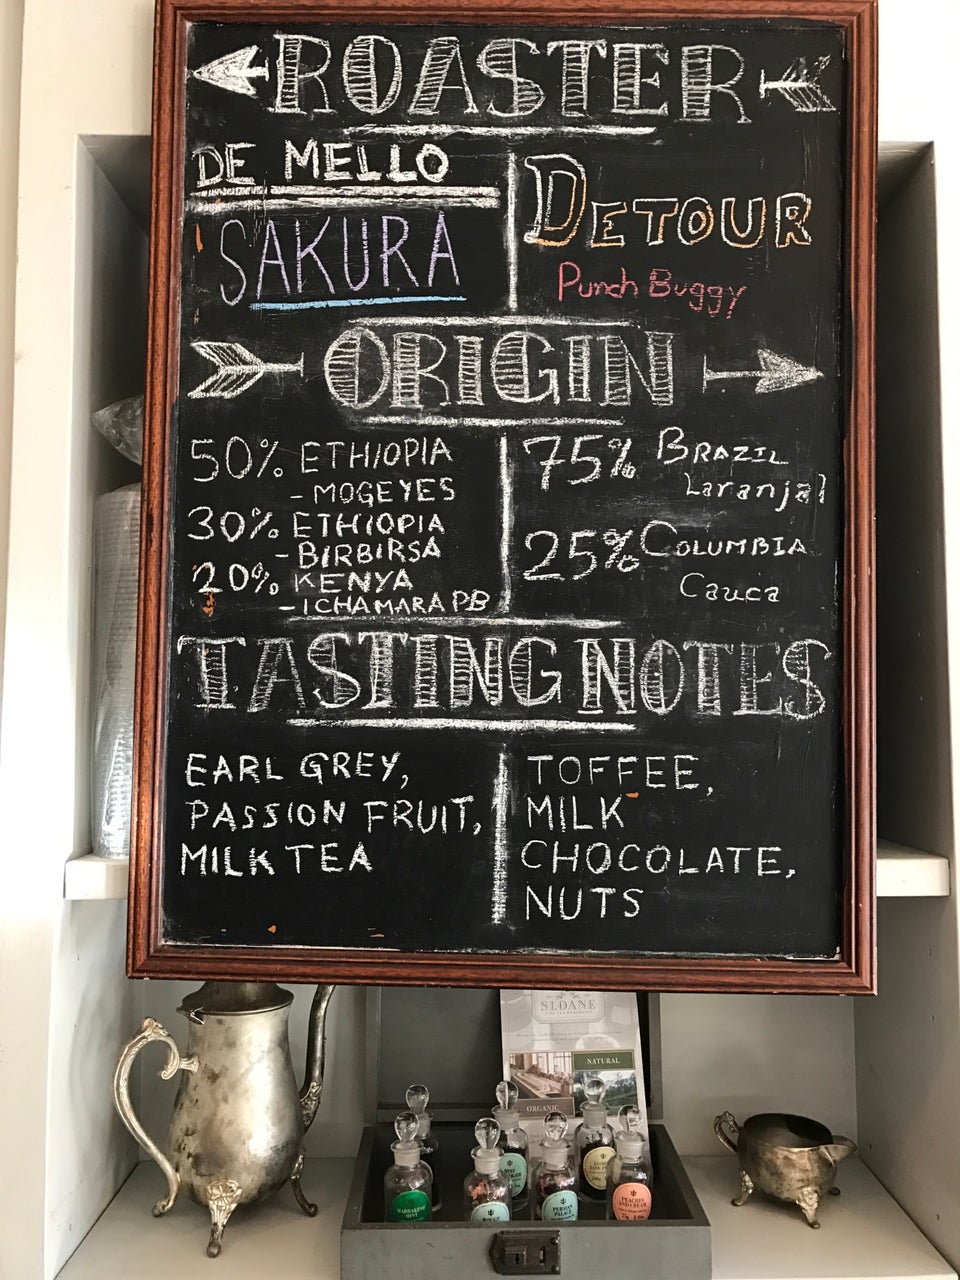 ROASTER
DE MELLO
SAKURA
DETOUR
Punch Buggy
ORIGIN
50% ETHIOPIA
- MOGEYES
30% ETHIOPIA
- BIRBIRSA
20% KENYA
- ICHAMARA PB
75% BRAZIL
Laranjal
25% COLUMBIA
Cauca
TASTING NOTES
EARL GREY,
PASSION FRUIT,
MILK TEA
TOFFEE,
MILK
CHOCOLATE,
NUTS
SLOANE
NATURAL
ORGANIC
MARRAKESH
MINT
PERSIAN
PALACE
PEACHES
AND CREAM